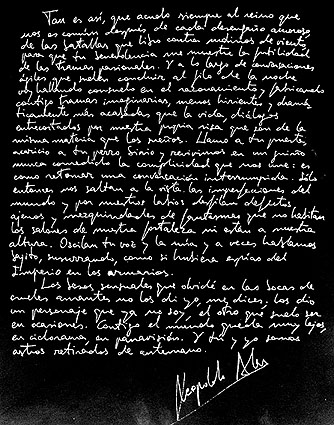 Tan es así, que acudo siempre al reino que
nos es común después de cada desengaño amoroso,
de las batallas que libro contra molinos de viento,
para que tu benevolencia me muestre la futilidad
de las tramas pasionales. Y a lo largo de conversaciones
ágiles que suelen concluir al filo de la noche
voy hallando consuelo en el razonamiento y fabricando
contigo tramas imaginarias, menos hirientes, y dramá
ticamente más acabadas que la vida, diálogos
entrecortados por nuestra propia risa que son de la
misma materia que los sueños. Llamo a tu puerta,
acaricio a tu perro Sirio y revivimos en un guiño
nunca consabido la complicidad que nos une: es
como retomar una conversación interrumpida. Sólo
entonces nos saltan a la vista las imperfecciones del
mundo y por nuestros labios desfilan defectos
ajenos y mezquindades de fantasmas que no habitan
los salones de nuestra fortaleza ni están a nuestra
altura. Oscilan tu voz y la mía y a veces hablamos
bajito, susurrando, como si hubiera espías del
Imperio en los armarios.
Los besos sensuales que olvidé en las bocas de
crueles amantes no los di yo, me dices, los dio
un personaje que ya no soy, el otro que suelo ser
en ocasiones. Contigo el mundo queda muy lejos,
en ciclorama, en panavisión. Y tú y yo somos
astros retirados de antemano.
Leopoldo Alas